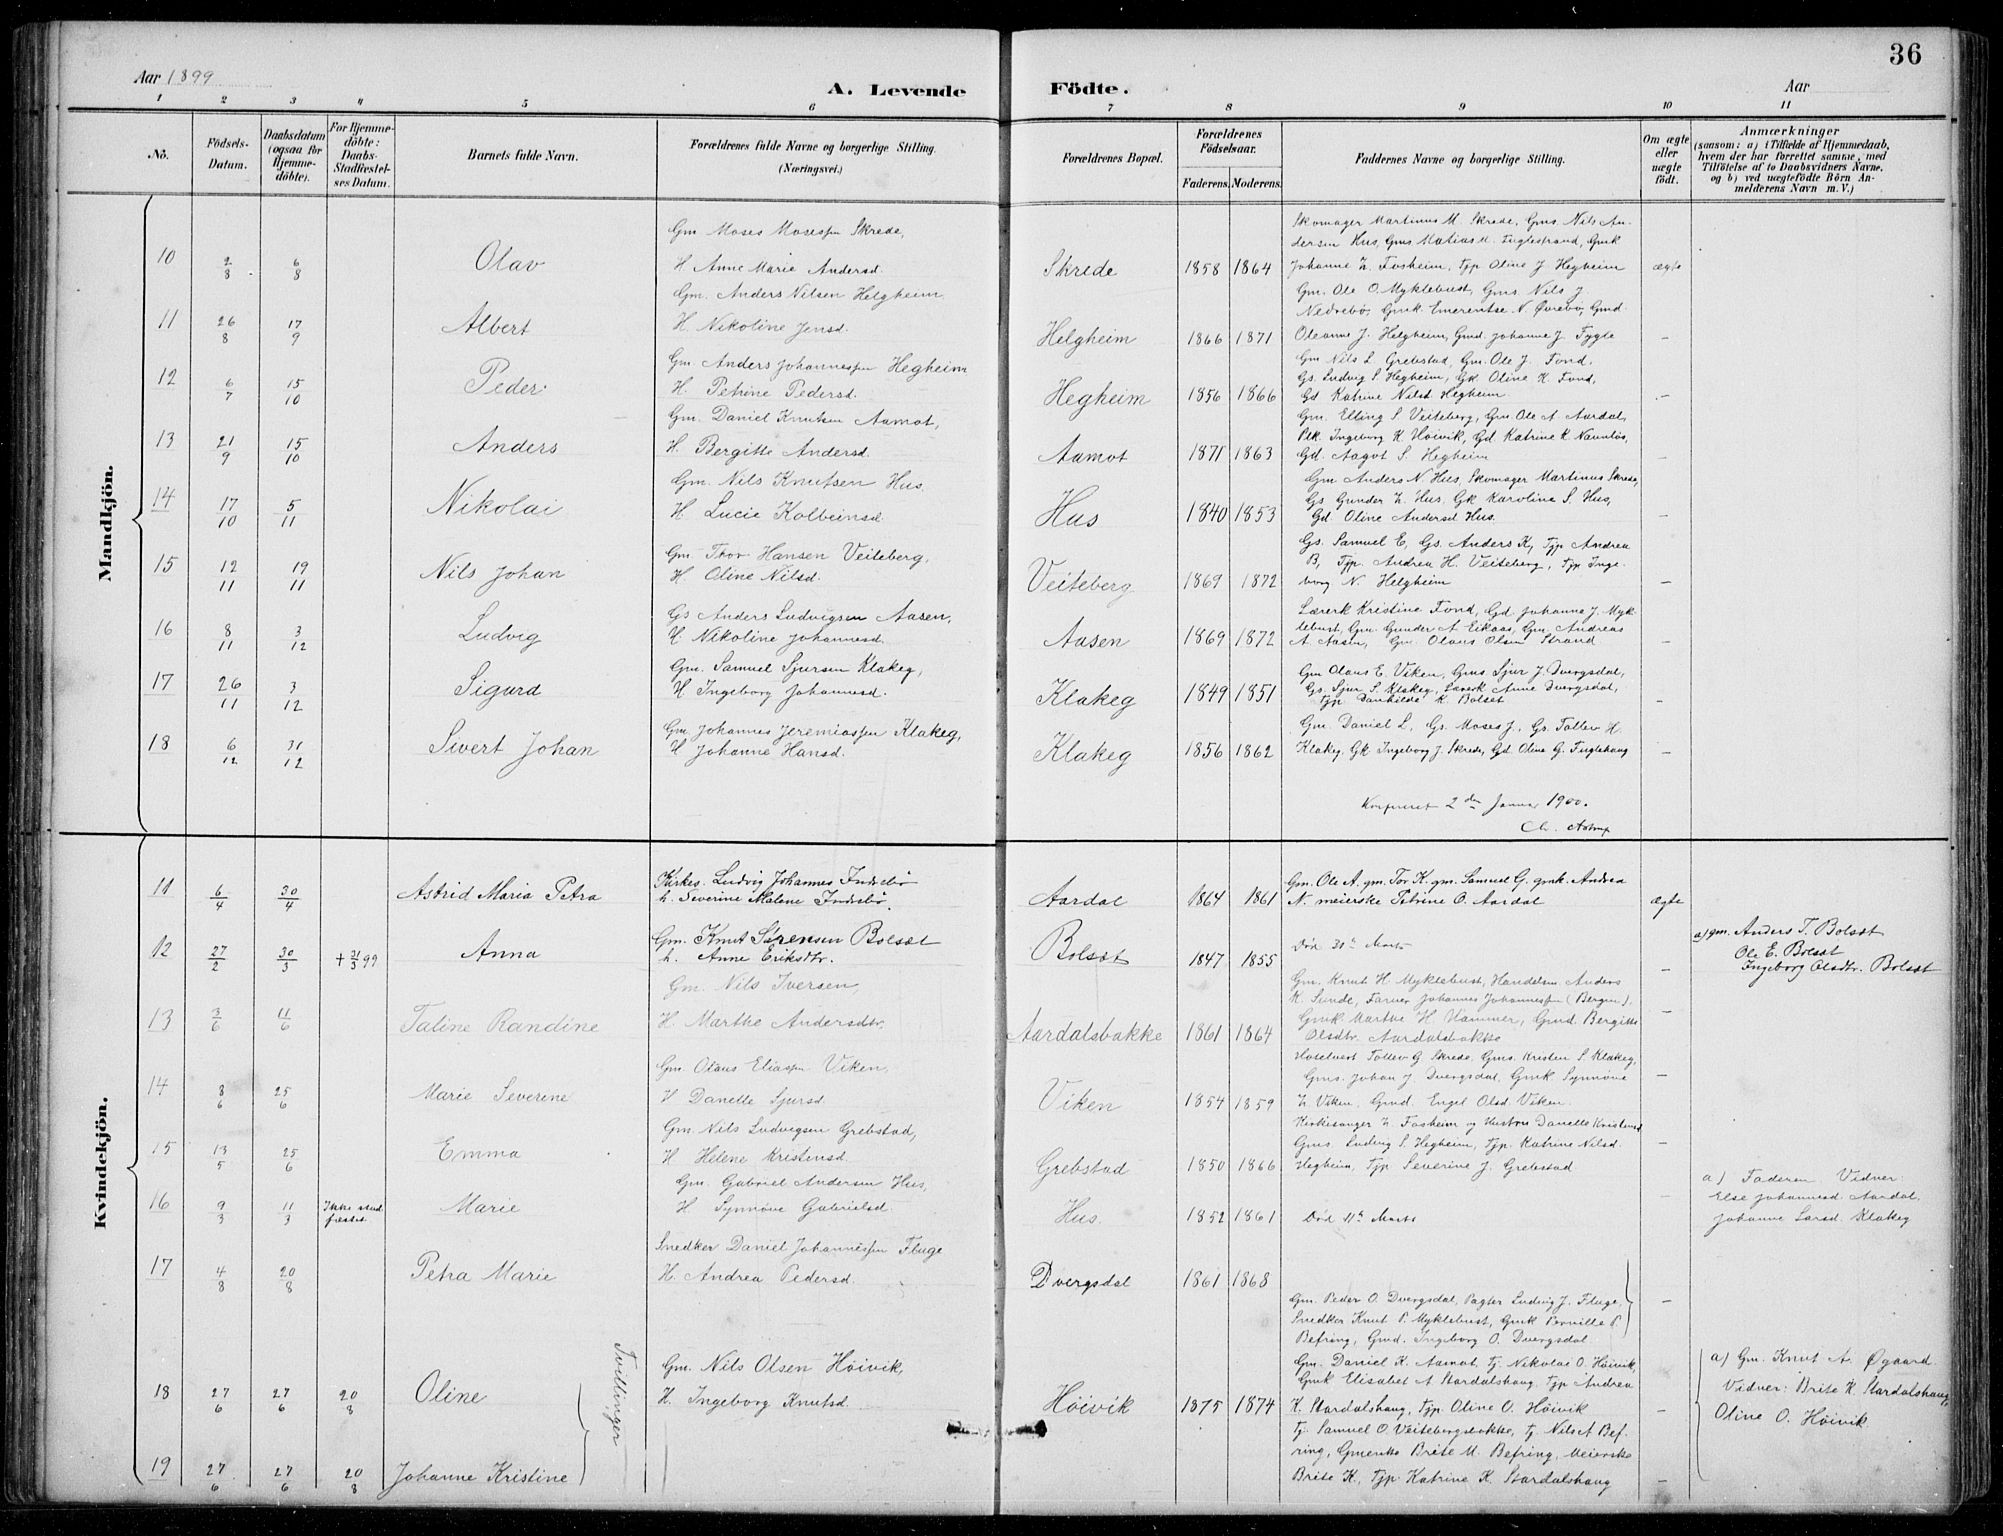 36
Aar 1899
A. Levende Födte.
Aar
1 2 3 4 5 6 7 8 9 10 11
No.
Födsels-Datum.
Daabsdatum (ogsaa for Hjemme-döbte).
For Hjemme-döbte: Daabs-Stadfæstel-ses Datum.
Barnets fulde Navn.
Forældrenes fulde Navne og borgerlige Stilling.
(Næringsvei.)
Forældrenes Bopæl.
Forældrenes Födselsaar.
Faderens. Moderens.
Faddernes Navne og borgerlige Stilling.
Om ægte eller uægte födt.
Anmærkninger
(saasom: a) i Tilfælde af Hjemmedaab,
hvem der har forrettet samme, med
Tilföielse af to Daabsvidners Navne.
og b) ved uægtefödte Börn An-
melderens Navn m. V.)
Mandkjön.
10 2/8 6/8 Olav
Gm Moses Mosesen Skrede,
H Anne Marie Andersd.
Skrede 1858 1864
Skomager Martinus M. Skrede, Gms Nils An-
dersen Hus, Gms Matias M. Fuglestrand, Gmk
Johanne L. Fosheim, Tjp Oline J Hegheim
ægte
11 26/8 17/9 Albert
Gm. Anders Nilsen Helgheim
H. Nikoline Jensd.
Helgheim 1866 1871
Gm. Ole O. Myklebust, Gms Nils J.
Nedrebø, Gmk Emerentse N. Øvrebø, Gmd.
Oleanne J. Helgheim, Gmd. Johanne J. Fygle
–
12 6/7 15/10 Peder
Gm Anders Johannesen Hegheim
H. Petrine Pedersd.
Hegheim 1856 1866
Gm Nils L. Grebstad, Gm. Ole J. Fond,
Gs. Ludvig S. Hegheim, Gk Oline K. Fond,
Gd Katrine Nilsd Hegheim
–
13 21/9 15/10 Anders
Gm. Daniel Knutsen Aamot,
H. Bergitte Andersd.
Aamot 1871 1863
Gm. Elling S Veiteberg, Gm. Ole A. Aardal,
Plk. Ingeborg K. Høivik, Gd Katrine K Navnløs,
Gd. Aagot S. Hegheim
–
14 17/10 5/11 Nikolai
Gm. Nils Knutsen Hus,
H. Lucie Kolbeinsd.
Hus 1840 1853
Gm Anders N. Hus, Skomager Martinus Skrede,
Gs Gunder L. Hus, Gk Karoline S Hus,
Gd. Oline Andersd Hus.
–
15 12/11 19/11 Nils Johan
Gm Thor Hansen Veiteberg,
H. Oline Nilsd.
Veiteberg 1869 1872
Gs. Samuel E, Gs. Anders K, Tjp Andrea
B, Tjp. Andrea H. Veiteberg, Tjp Inge-
borg N. Helgheim
–
16 8/11 3/12 Ludvig
Gs Anders Ludvigsen Aasen,
H Nikoline Johannesd.
Aasen 1869 1872
Lærerk Kristine Fond, Gd. Johanne J. Myk-
lebust, Gm. Gunder A. Eikaas, Gm. Andreas
A. Aasen, Gm. Olaus Olsen Strand
–
17 26/11 3/12 Sigurd
Gm. Samuel Sjursen Klakeg,
H Ingeborg Johannesd.
Klakeg 1849 1851
Gm Olaus E. Viken, Gms Sjur J. Dvergsdal,
Gs. Sjur S. Klakeg, Lærerk Anne Dvergsdal,
Tjp Danhilde K. Bolset
–
18 6/12 31/12 Sivert Johan
Gm Johannes Jeremiasen Klakeg,
H Johanne Hansd.
Klakeg 1856 1862
Gm. Daniel L, Gs. Moses J., Gs. Tollev H.
Klakeg, Gk Ingeborg J. Skrede, Gd Oline G. Fuglehaug
–
Konfereret 2den Januar 1900.
Ch. Astrup
Kvindekjön.
11 6/4 30/4 Astrid Maria Petra
Kirkes. Ludvig Johannes Indrebø
h. Severine Malene Indrebø.
Aardal 1864 1861
Gm. Ole A. gm. Tor K. gm. Samuel G. gmk. Andrea
N. meierske Petrine O. Aardal
ægte
12 27/2 30/3 + 31/3 99 Anna
Gm. Knut Sørensen Bolset
h. Anne Eriksdtr.
Bolset 1847 1855
Død 31te Marts
–
a) gm. Anders T. Bolset
Ole E. Bolset
Ingeborg Olsdtr. Bolset
13 3/6 11/6 Taline Randine
Gm. Nils Iversen,
H. Marthe Andersdtr,
Aardalsbakke 1861 1864
Gm. Knut H Myklebust, Handelsm. Anders
K. Sunde, Farver Johannes Johannessen (Bergen),
Gmk. Marthe H Hammer, Gmd. Bergitte
Olsdtr. Aardalsbakke
–
14 8/6 25/6 Marie Severine
Gm. Olaus Eliassen Viken,
H Danelle Sjursd.
Viken 1854 1859
Hotelvert Tollev G Skrede, Gms. Kristen S. Klakeg,
Gms. Johan J. Dvergsdal, Gmk. Synnøve
L. Viken, Gmd. Engel Olsd. Viken.
–
15 13/5 25/6 Emma
Gm. Nils Ludvigsen Grebstad,
H Helene Kristensd.
Grebstad 1850 1866
Kirkesanger L. Fosheim og Hustru Danelle Kristensd
Gms. Ludvig S. Hegheim, Tjp. Katrine Nilsd.
Hegheim, Tjp Severine J. Grebstad
–
16 9/3 11/3 Ikke stad-fæstet Marie
Gm. Gabriel Andersen Hus,
H Synnøve Gabrielsd.
Hus. 1852 1861
Død 11te Marts
–
a) Faderen. Vidner:
Else Johannesd. Aardal,
Johanne Larsd. Klakeg
17 4/8 20/8 Petra Marie
Snedker Daniel Johannessen Fluge
H. Andrea Pedersd.
Dvergsdal 1861 1868
Gm. Peder O. Dvergsdal, Pagter Ludvig J. Fluge,
Snedker Knut P. Myklebust, Gmk Pernille P.
Befring, Gmd. Ingeborg O. Dvergsdal
–
18 27/6 27/6 20/8 Oline
Tvillinger
Gm. Nils Olsen Høivik,
H. Ingeborg Knutsd.
Høivik 1875 1874
Gm. Daniel K. Aamot, Tj. Nikolai O. Høivik,
Gmk Elisabet A Stardalshaug, Tjp Andrea
K. Stardalshaug, Tjp. Oline O. Høivik
–
a) Gm. Knut A. Øgaard
Vidner: Brite K. Stardalshaug,
Oline O. Høivik
19 27/6 27/6 20/8 Johanne Kristine
Tj. Samuel O. Veitebergsbakke, Tj. Nils A Bef-
ring, Gmenke Brite M. Befring, Meierske
Brite K, Tjp Katrine K. Stardalshaug
–